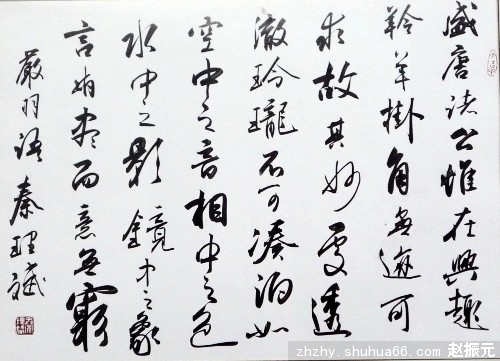 盛唐诸公惟在興趣
羚羊掛角無迹可
求故其妙處透
澈玲瓏不可湊泊如
空中之音相中之色
水中之影鏡中之象
言有盡而意無窮
嚴羽語 秦理斌
zhzhy.shuhua66.com 赵振元